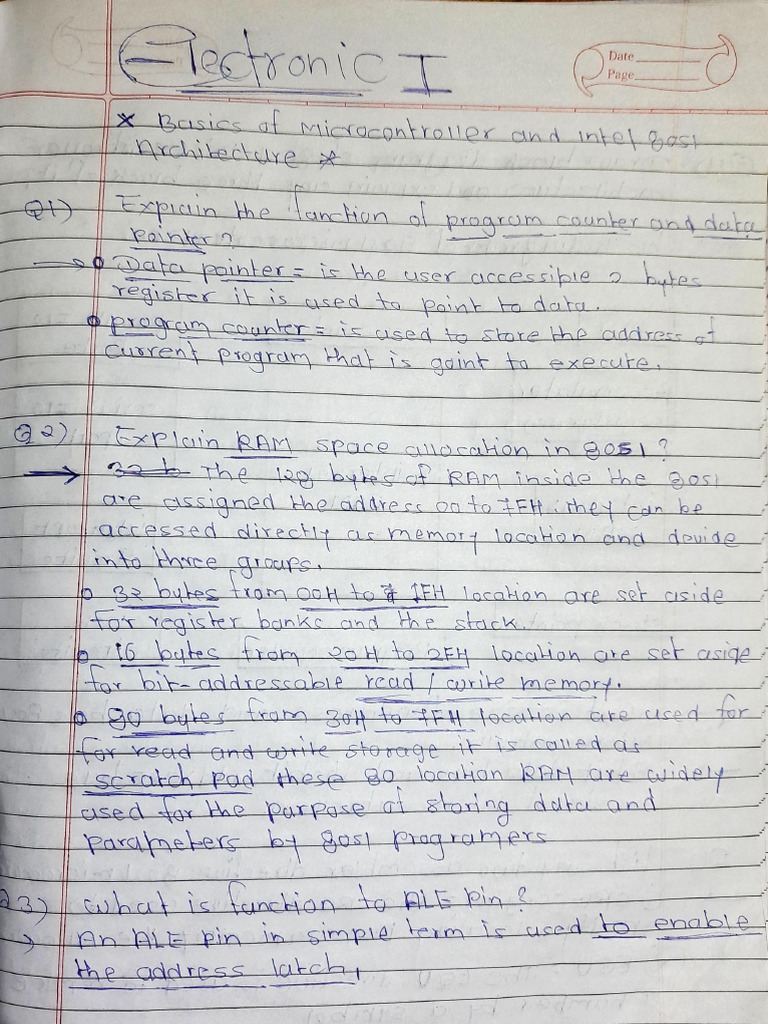 Electronic I
Date
Page
* Basics of Microcontroller and intel 8051
Architecture *
Q1) Explain the function of program counter and data
pointer?
→ Data pointer = is the user accessible 2 bytes
register it is used to point to data.
program counter = is used to store the address of
current program that is goint to execute.
Q2) Explain RAM space allocation in 8051?
→ 32 b The 128 bytes of RAM inside the 8051
are assigned the address 00 to 7FH. They can be
accessed directly as memory location and devide
into three groups.
32 bytes from 00H to 1FH location are set aside
for register banks and the stack.
16 bytes from 20H to 2FH location are set aside
for bit-addressable read / write memory.
80 bytes from 30H to 7FH location are used for
for read and write storage it is called as
scratch pad these 80 location RAM are widely
used for the purpose of storing data and
parameters by 8051 programers
3) What is function to ALE pin?
→ An ALE pin in simple term is used to enable
the address latch.